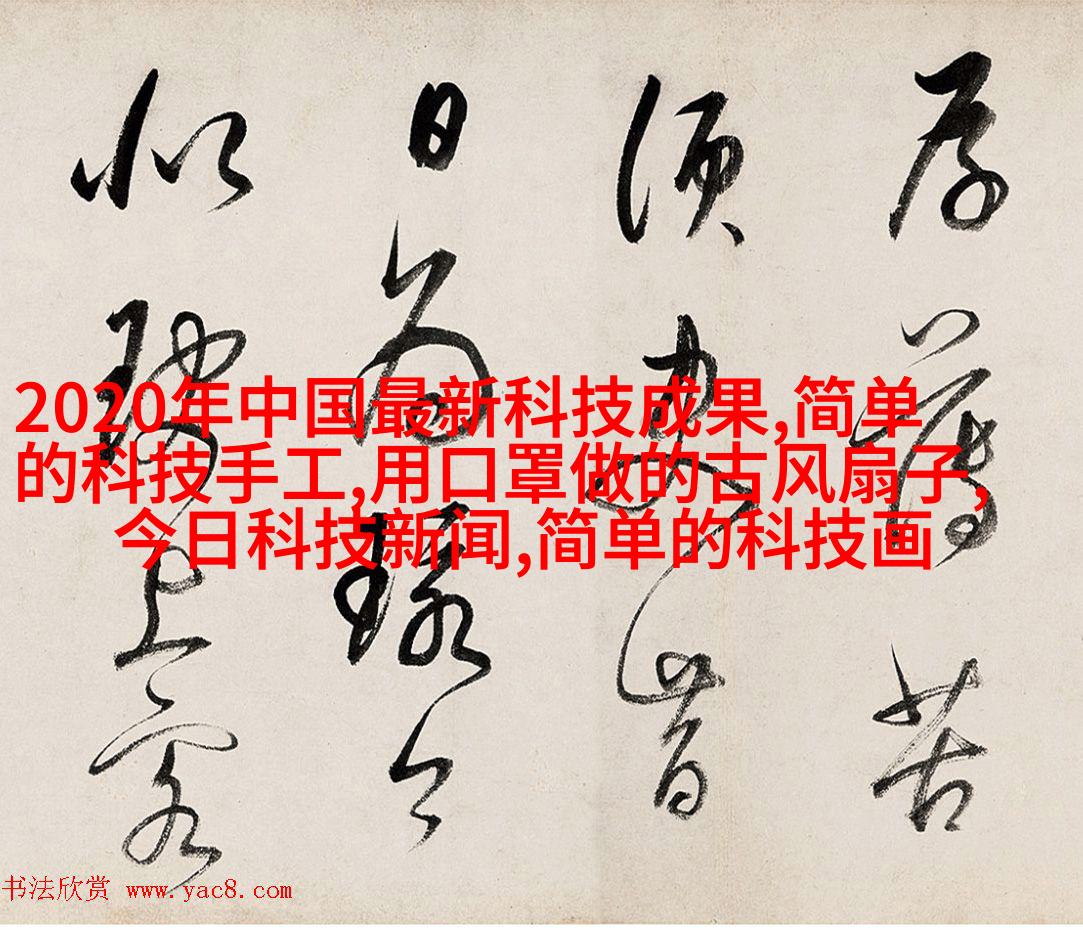 2020年中国最新科技成果,简单
的科技手工,用口罩做的古风扇子,
今日科技新闻,简单的科技画
苦
须臾昔
日
似上客
书法欣赏 www.yac8.com